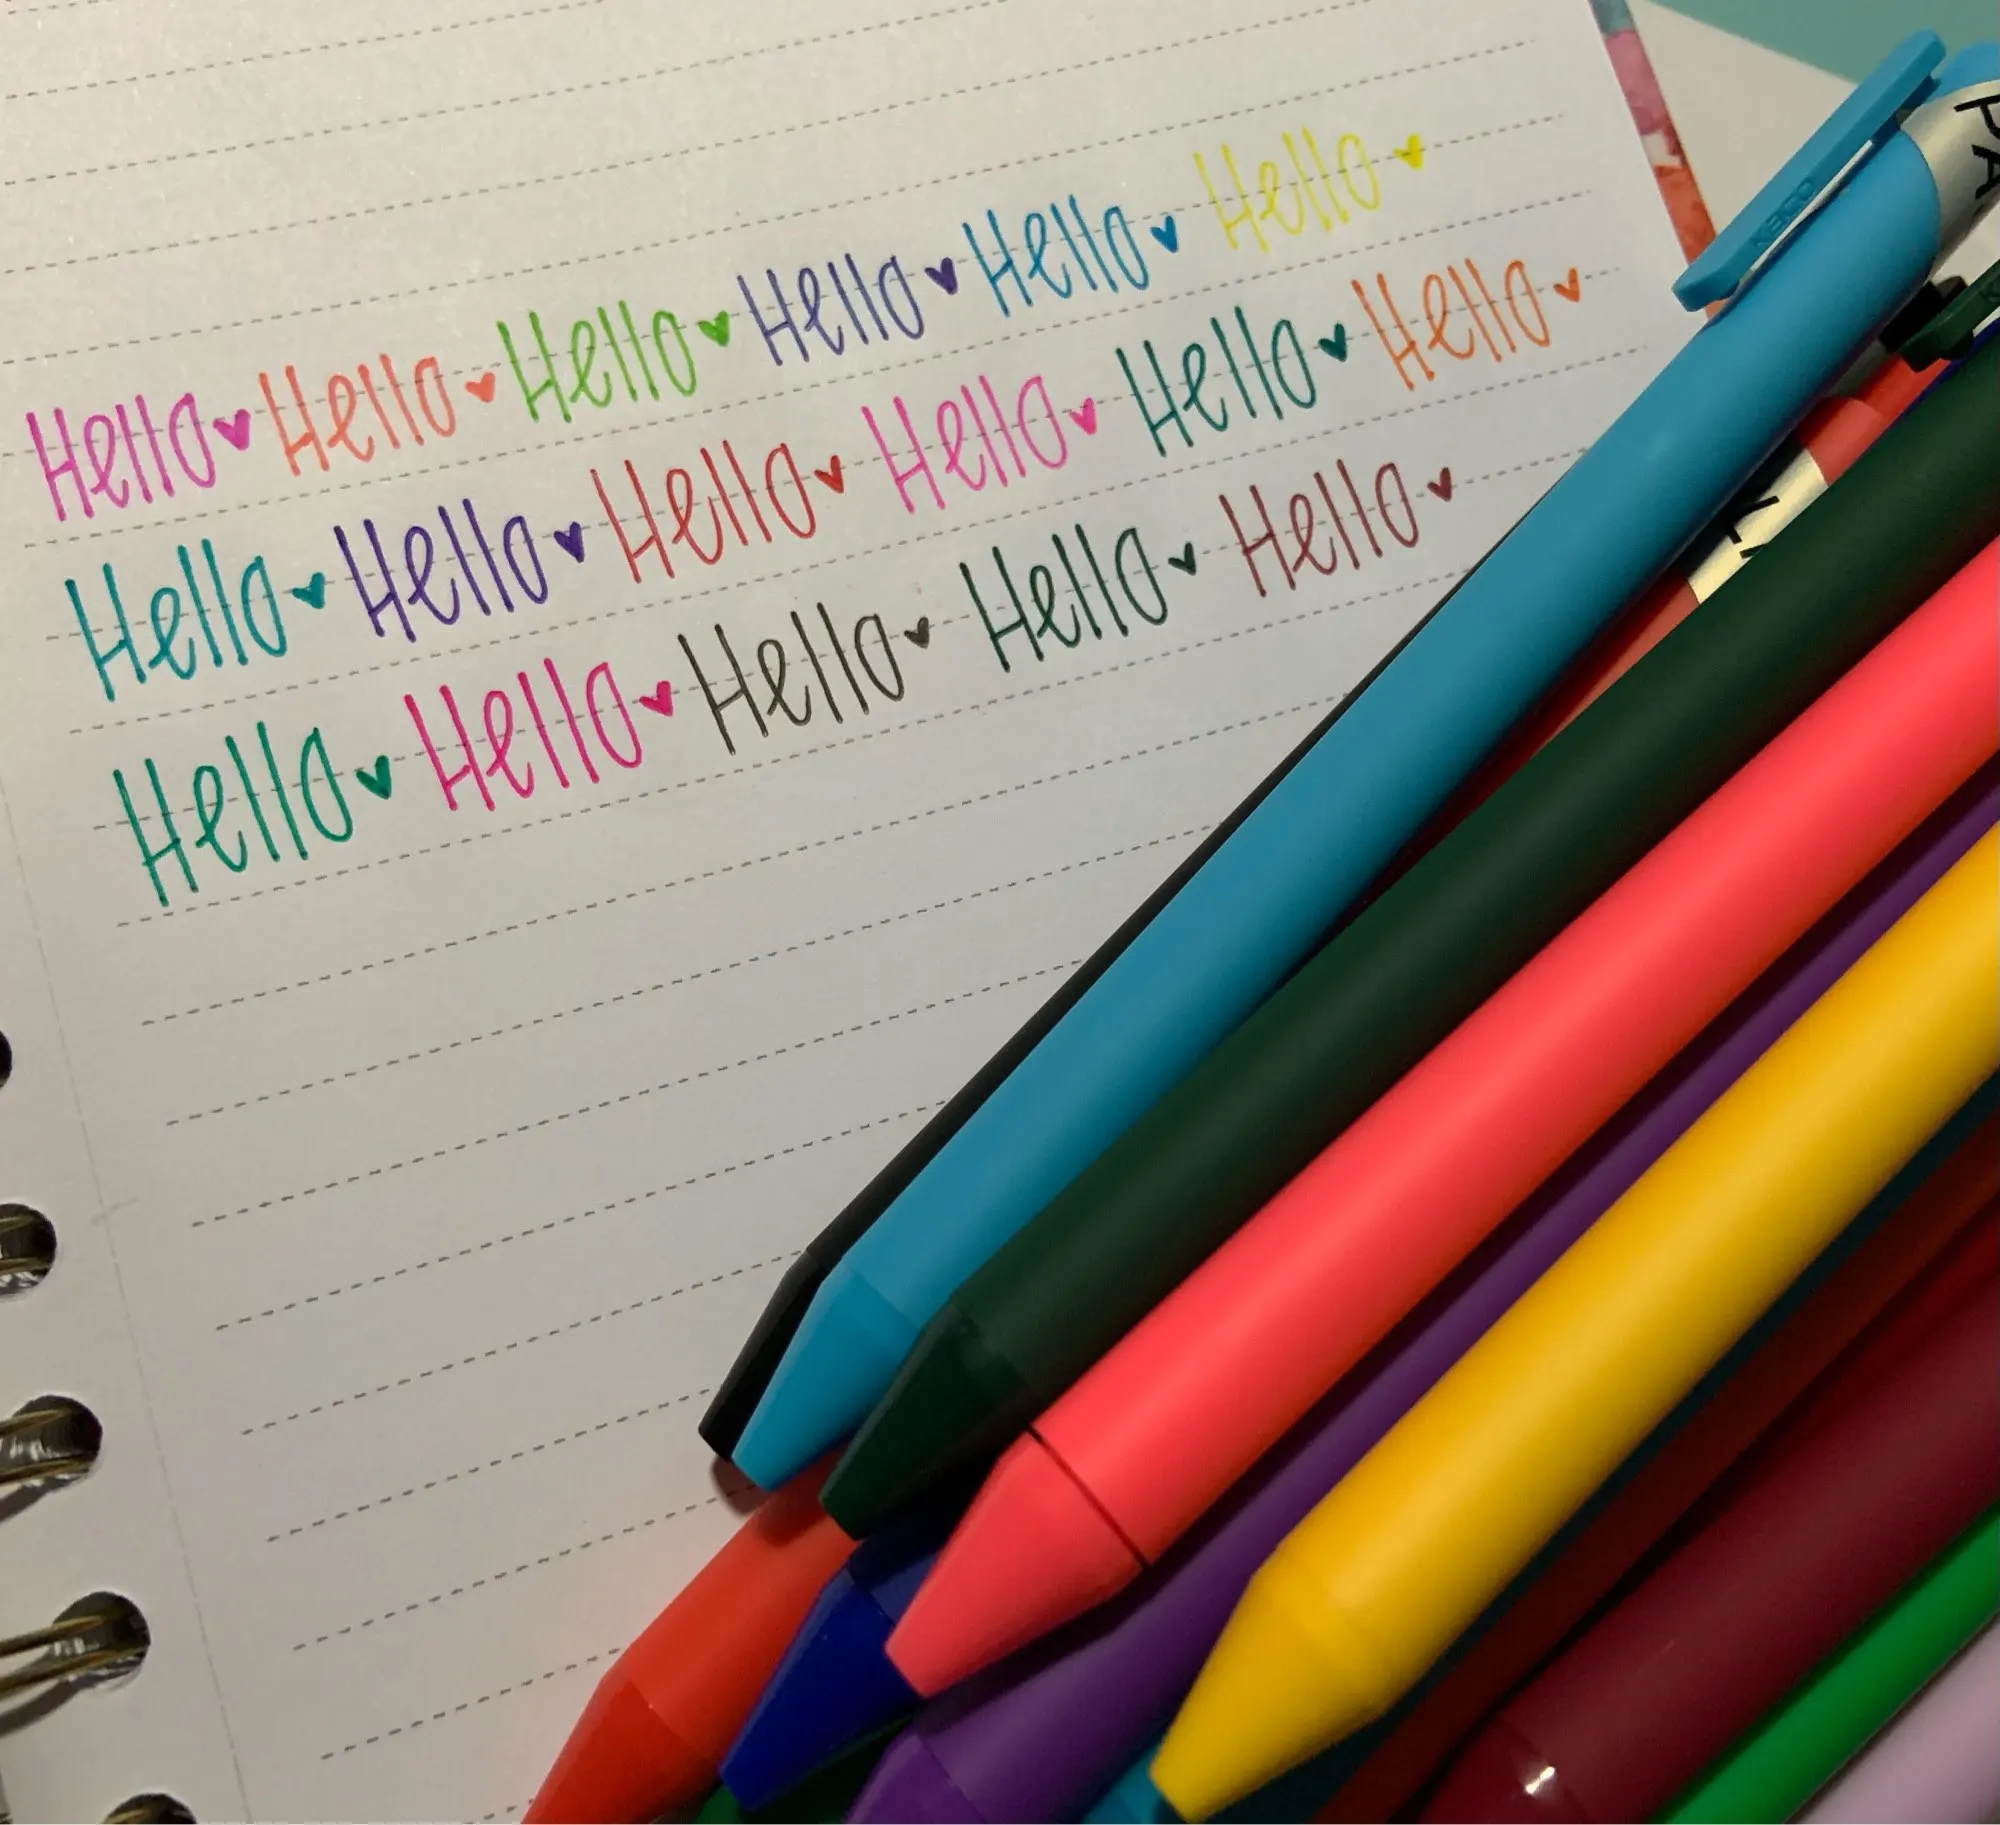 Hello ♥ Hello ♥ Hello ♥ Hello ♥ Hello ♥ Hello ♥
Hello ♥ Hello ♥ Hello ♥ Hello ♥ Hello ♥ Hello ♥
Hello ♥ Hello ♥ Hello ♥ Hello ♥ Hello ♥
KACO
PA